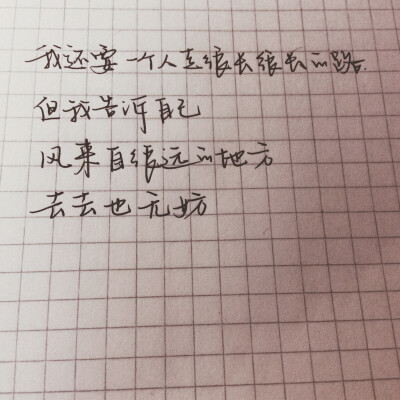 我还要一个人走很长很长的路.
但我告诉自己
风来自很远的地方
去去也无妨